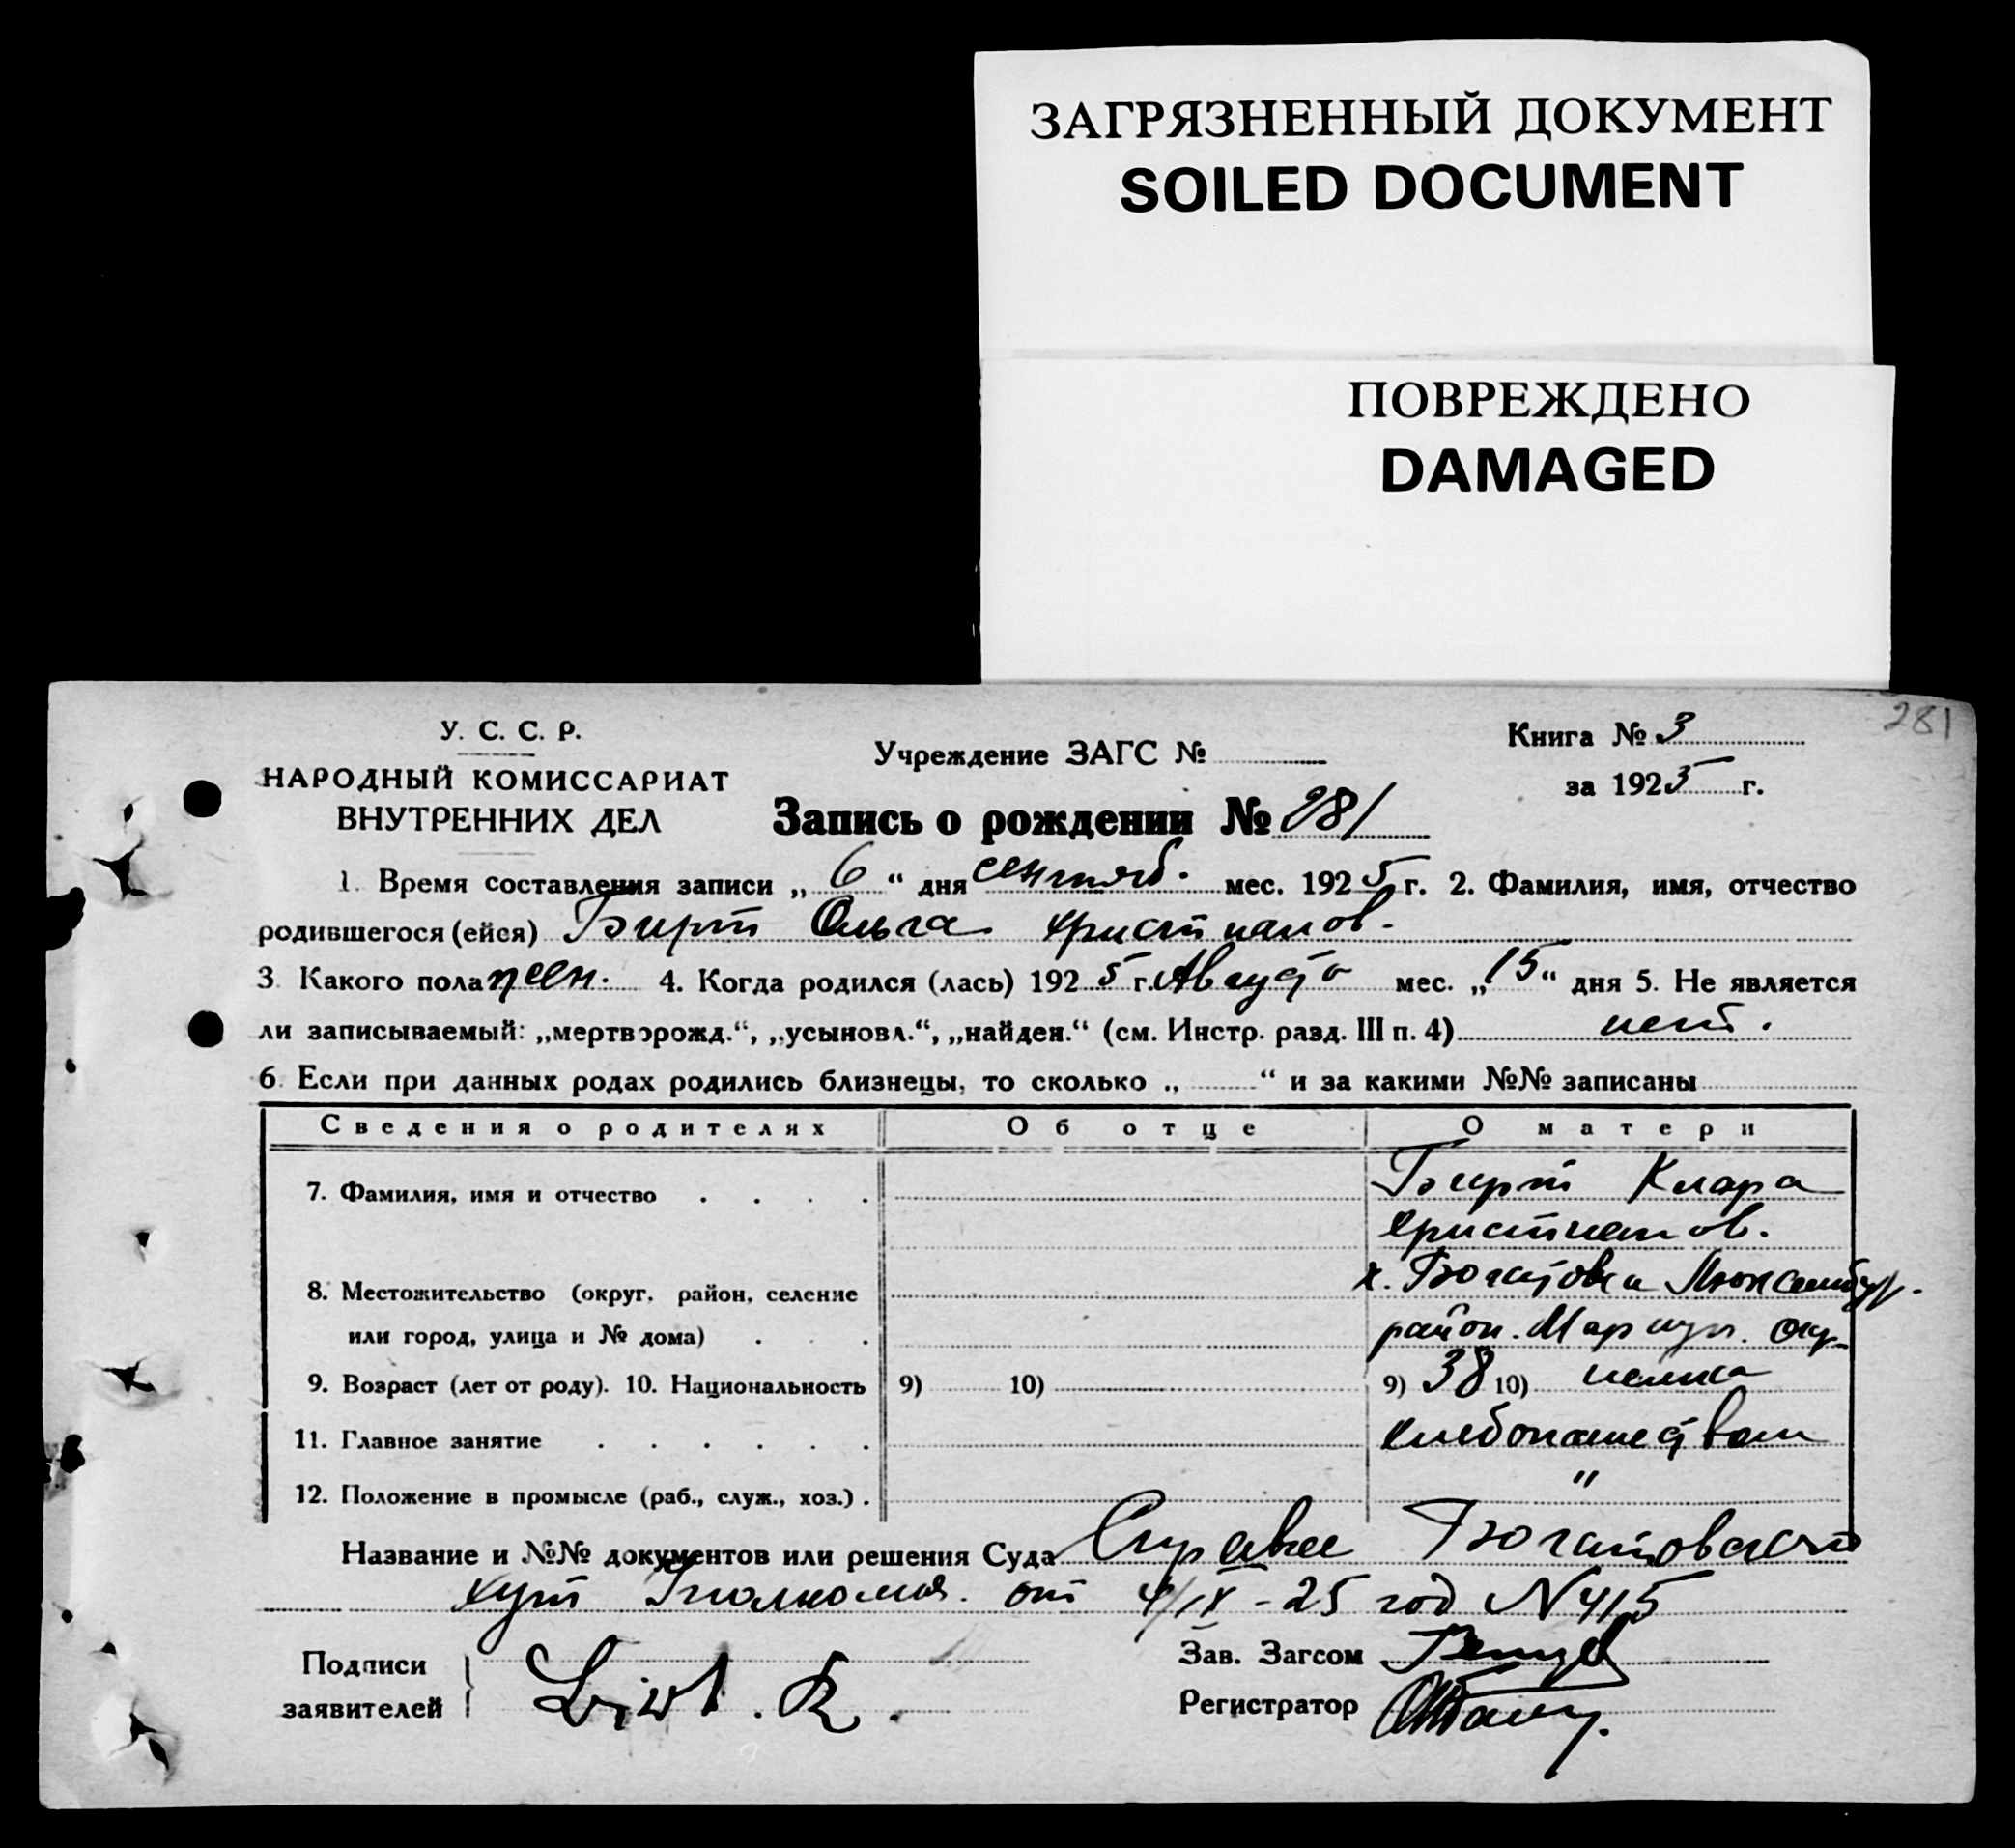 ЗАГРЯЗНЕННЫЙ ДОКУМЕНТ
SOILED DOCUMENT
ПОВРЕЖДЕНО
DAMAGED
281
У. С. С. Р.
НАРОДНЫЙ КОМИССАРИАТ
ВНУТРЕННИХ ДЕЛ
Учреждение ЗАГС №
Книга № 3
за 1925 г.
Запись о рождении № 281
1. Время составления записи „ 6 “ дня сентяб. мес. 1925 г. 2. Фамилия, имя, отчество
родившегося (ейся) Бирт Ольга Христианов.
3. Какого пола жен. 4. Когда родился (лась) 1925 г. Августа мес. „ 15 “ дня 5. Не является
ли записываемый: „мертворожд.“, „усыновл.“, „найден.“ (см. Инстр. разд. III п. 4) нет.
6. Если при данных родах родились близнецы, то сколько „ “ и за какими №№ записаны
Сведения о родителях Об отце О матери
7. Фамилия, имя и отчество . . . . Бирт Клара
Христианов.
8. Местожительство (округ, район, селение х. Богатовка Люксембур.
или город, улица и № дома) . . . район. Мариуп. Окр.
9. Возраст (лет от роду). 10. Национальность 9) 10) 9) 38 10) немка
11. Главное занятие . . . . . . хлебопашеством
12. Положение в промысле (раб., служ., хоз.) . "
Название и №№ документов или решения Суда Справка Богатовского
хут от 4/IX-25 год N 415
Подписи
заявителей } Birt. K.
Зав. Загсом
Регистратор